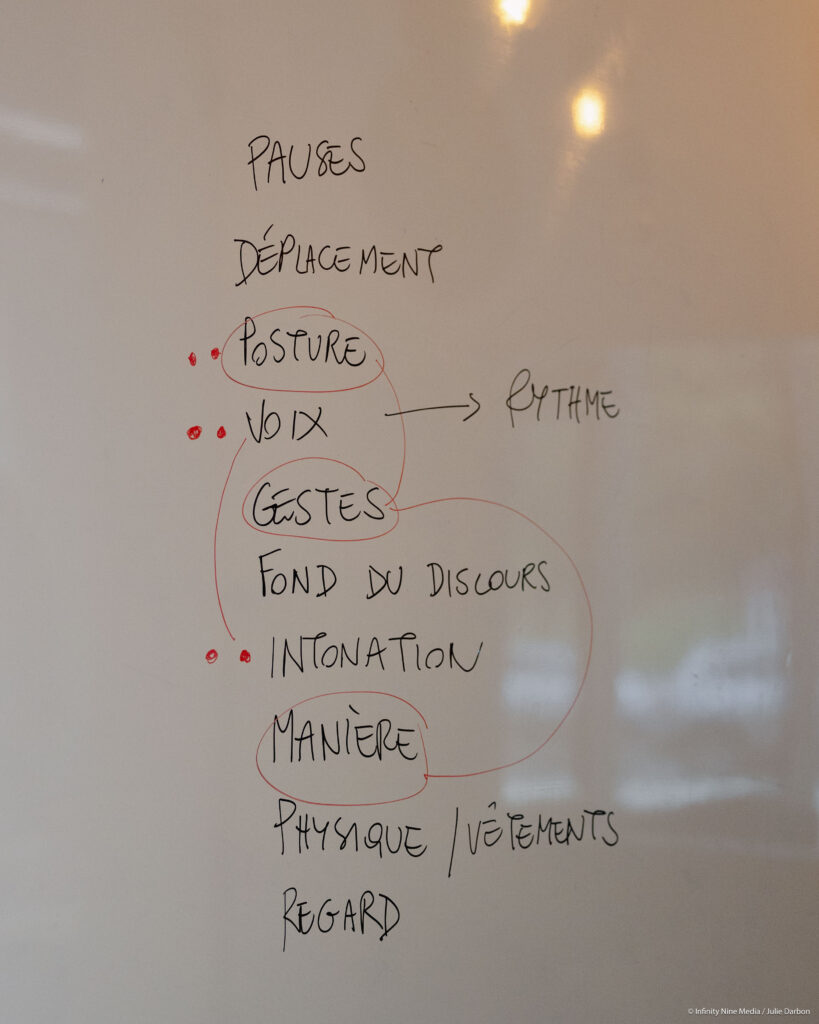 PAUSES
DÉPLACEMENT
POSTURE
VOIX → RYTHME
GESTES
FOND DU DISCOURS
INTONATION
MANIÈRE
PHYSIQUE / VÊTEMENTS
REGARD
© Infinity Nine Media / Julie Darbon